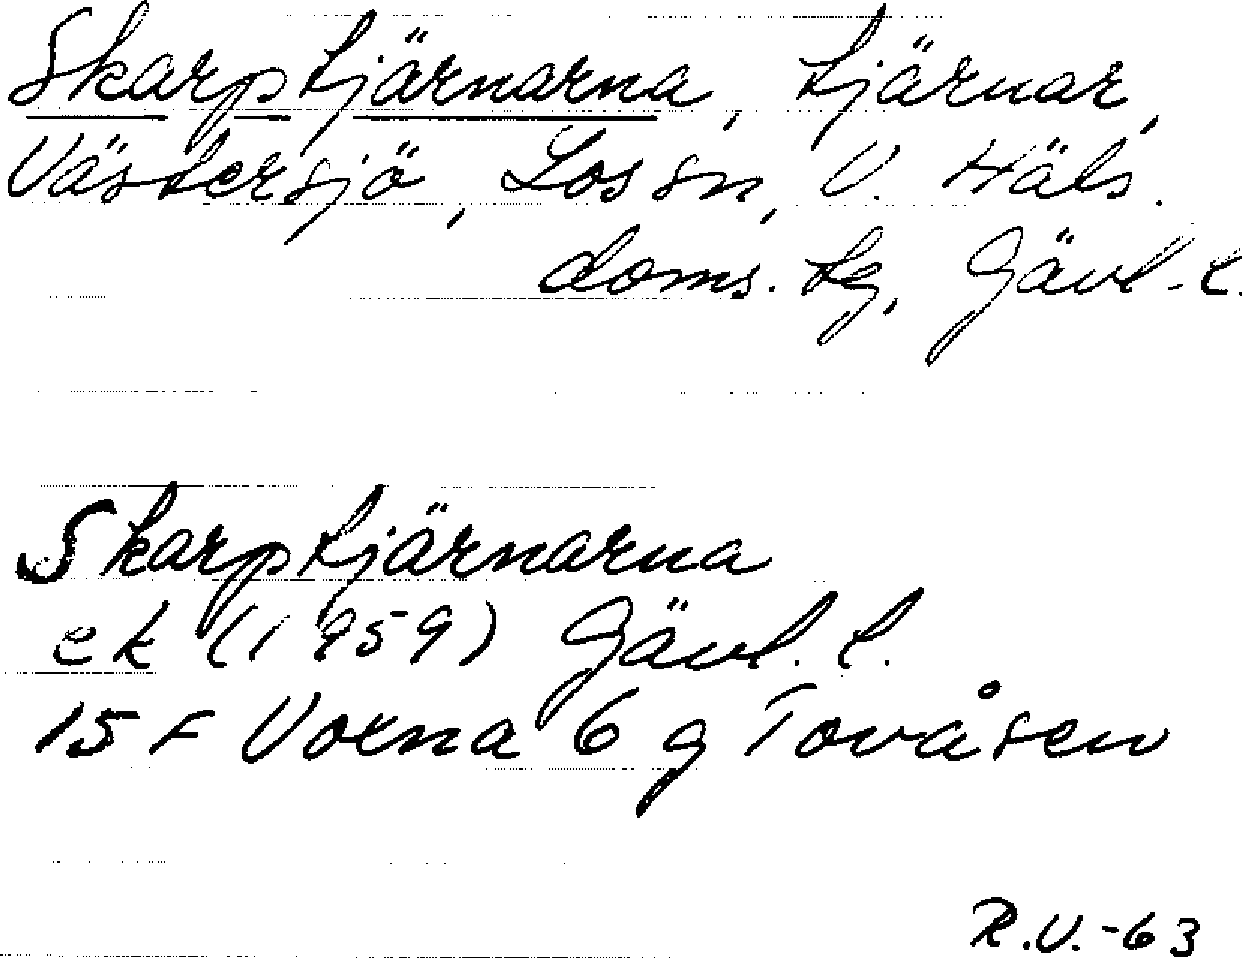 Skarptjärnarna, tjärnar,
Västersjö, Los sn, V. Häls.
doms. lg, Gävl. l.
Skarptjärnarna
ek (1959) Gävl. l.
15 F Vorna 6 g Tovåsen
R.V.-63